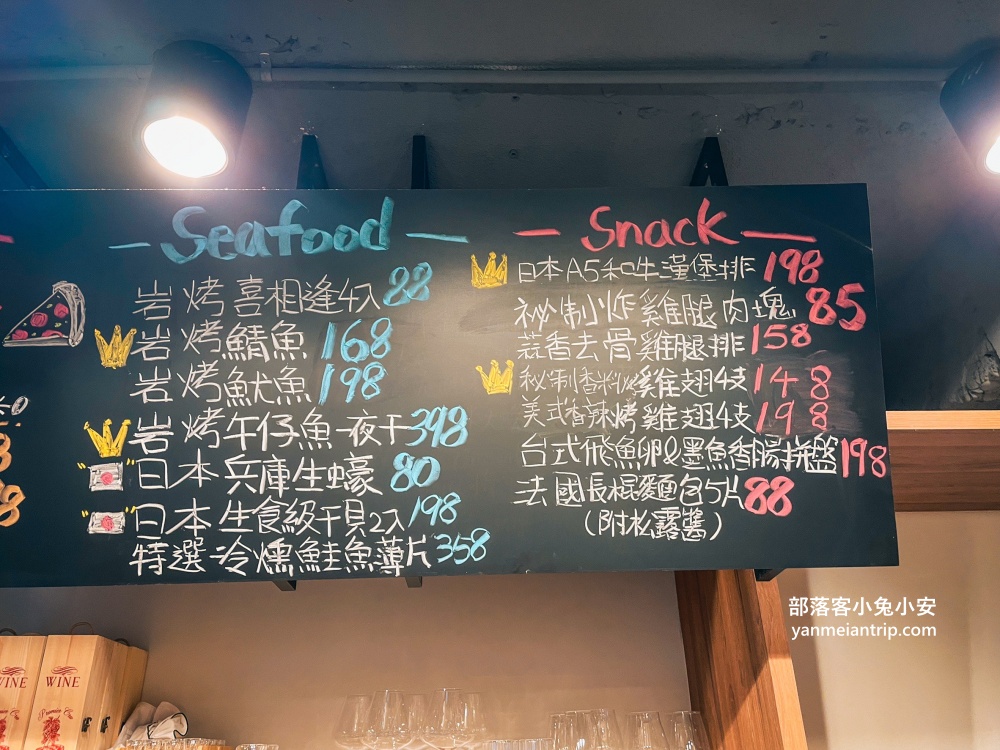 Seafood
岩烤喜相逢4入 88
岩烤鯖魚 168
岩烤魷魚 198
岩烤午仔魚一夜干 398
日本兵庫生蠔 80
日本生食級干貝2入 198
特選冷燻鮭魚薄片 358
Snack
日本A5和牛漢堡排 198
祕制炸雞腿肉塊 85
蒜香去骨雞腿排 158
秘制香料烤雞翅4支 148
美式香辣烤雞翅4支 198
台式飛魚卵&墨魚香腸拼盤 198
法國長棍麵包5片 88
(附松露醬)
部落客小兔小安
yanmeiantrip.com
WINE
WINE